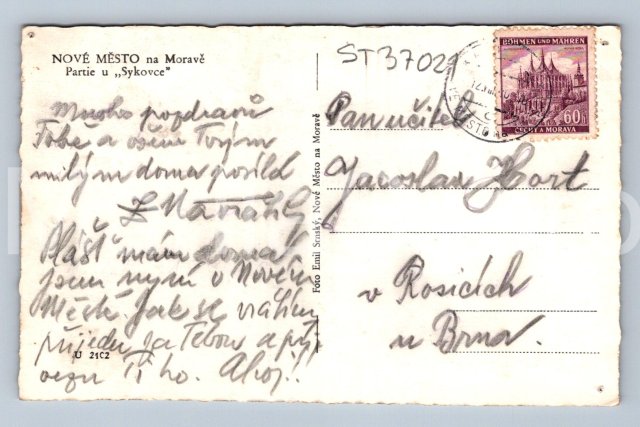 NOVÉ MĚSTO na Moravě
Partie u „Sykovce"
ST37029
BÖHMEN UND MÄHREN
60 h
ČECHY A MORAVA
Mnoho pozdravů
Tobě a všem Tvým
milým doma posílá
Plášť mám doma
jsem nyní v Novém
Městě. Jak se vrátím
přijedu za Tebou a při
vezu Ti ho. Ahoj!!
U 2102
Foto Emil Srnský, Nové Město na Moravě
Pan učitel
Jaroslav Hort
v Rosicích
u Brna.